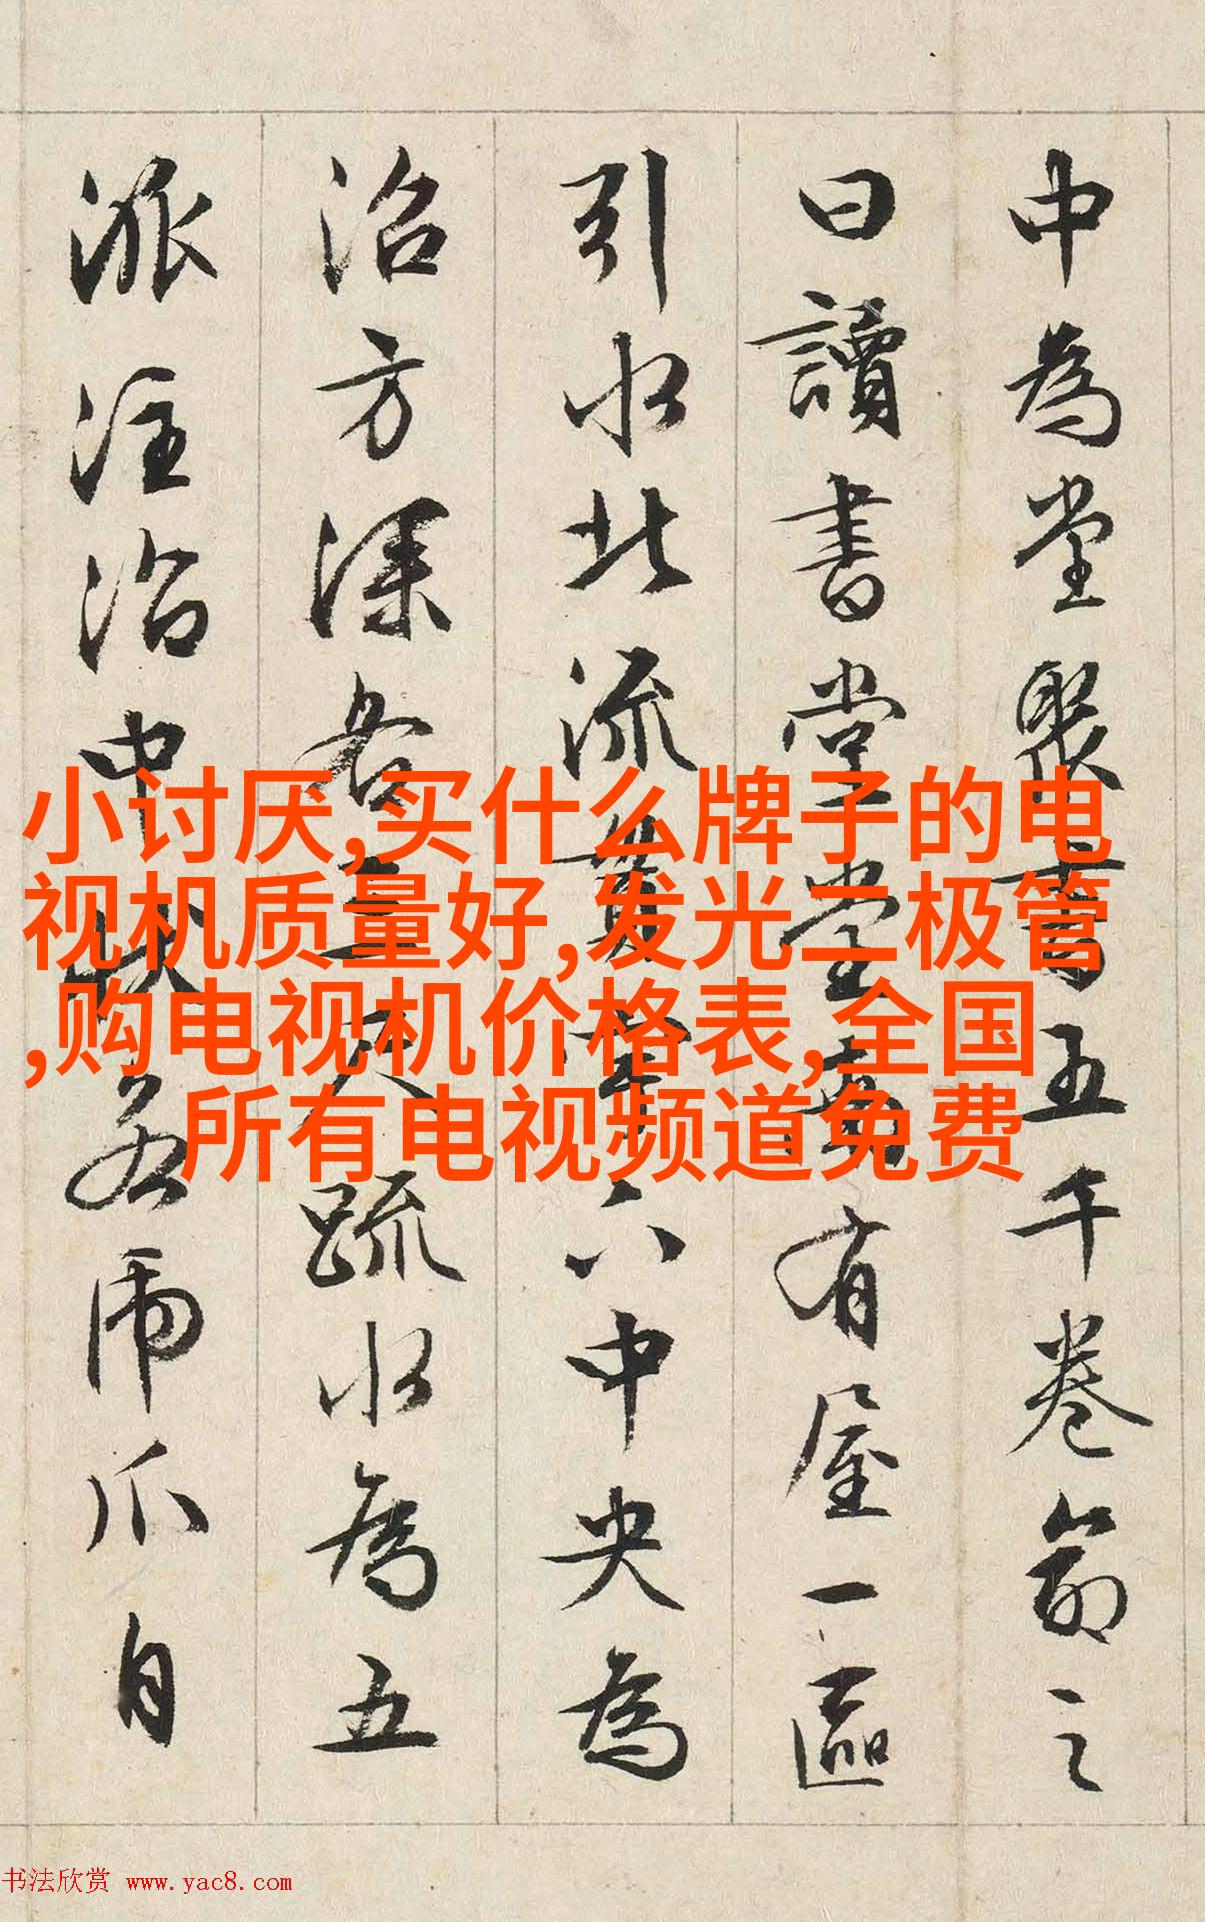 中為堂聚書五千卷命之
曰讀書堂堂南有屋一區
引水北流貫宇下中央為
沼方深各三尺疏水為五
派注沼中狀若虎爪自
小讨厌,买什么牌子的电
视机质量好,发光二极管
,购电视机价格表,全国
所有电视频道免费
书法欣赏 www.yac8.com